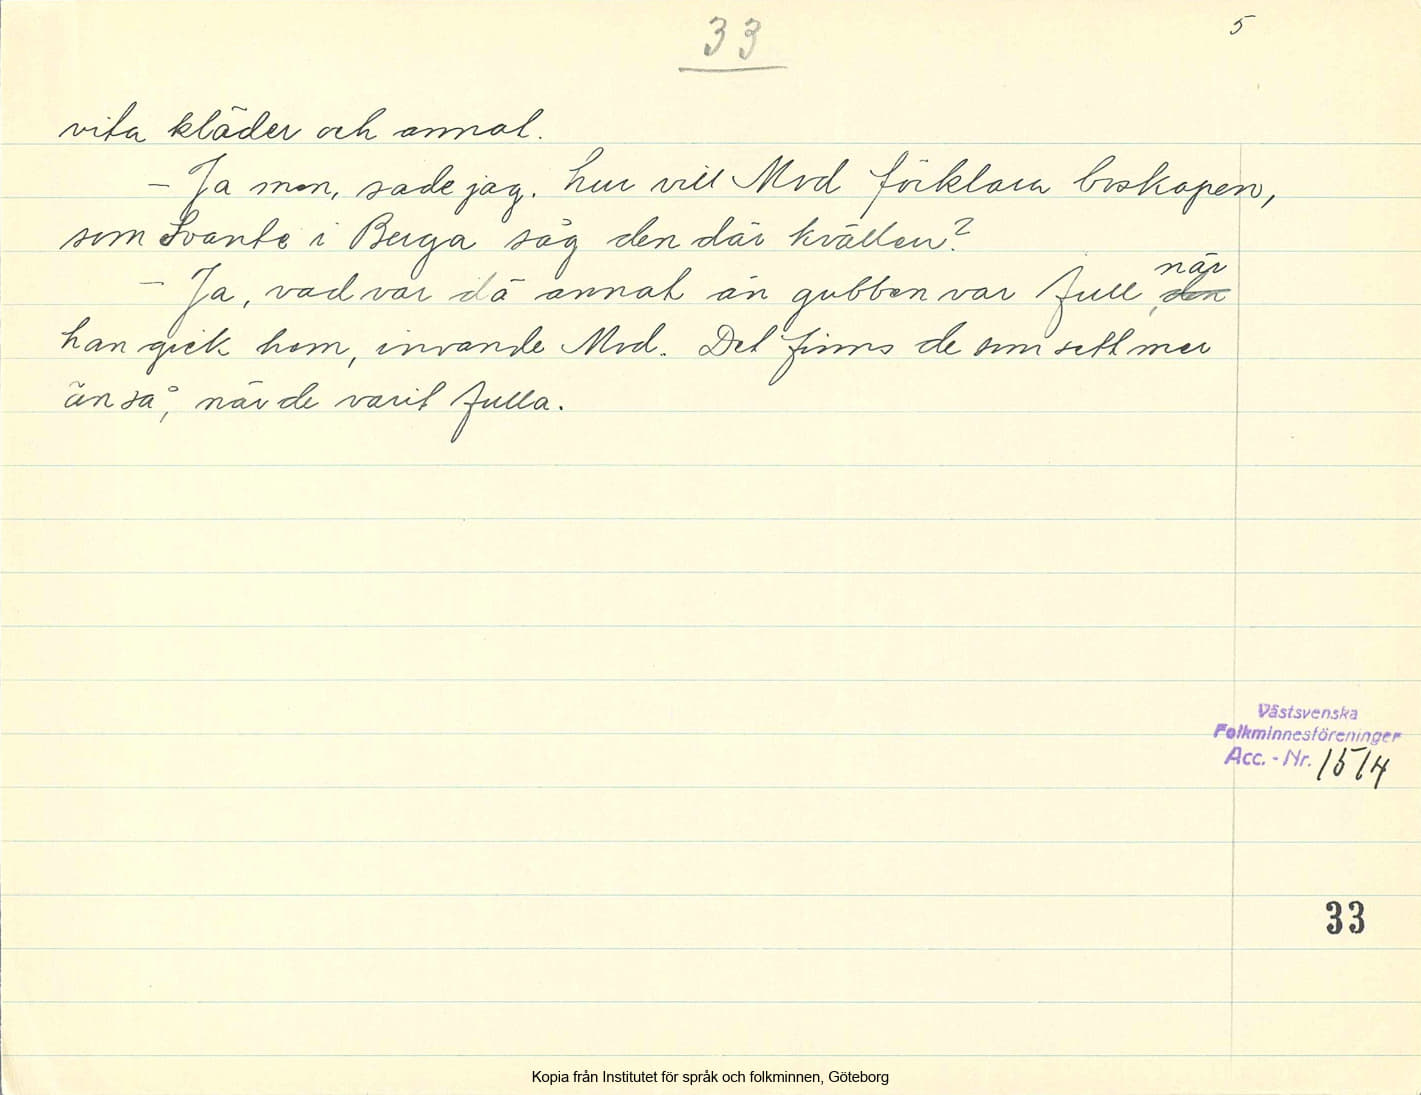 33
5
vita kläder och annat.
- Ja men, sade jag. hur vill Mod förklara boskapen,
som Svante i Berga såg den där kvällen?
- Ja, vad var dä annat än gubben var full, när
den
han gick hem, invände Mod. Det finns de som sett mer
än så, när de varit fulla.
Västsvenska
Folkminnesföreninger
Acc. - Nr. 1514
33
Kopia från Institutet för språk och folkminnen, Göteborg